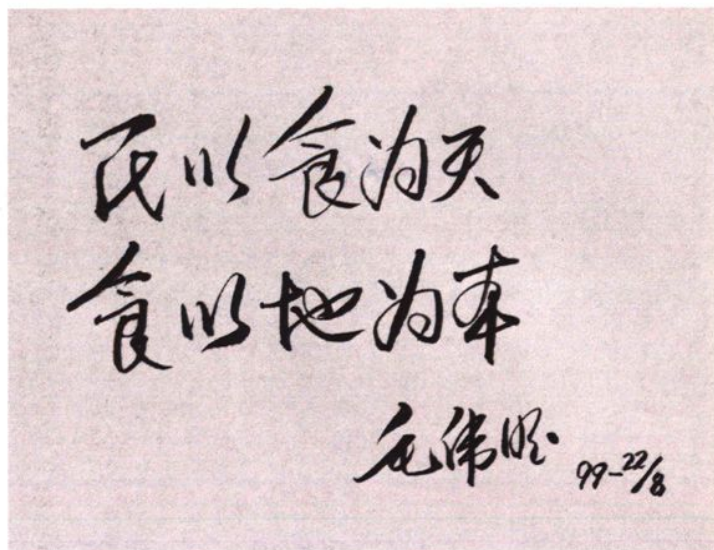 民以食为天
食以地为本
毛伟明 99-22/8